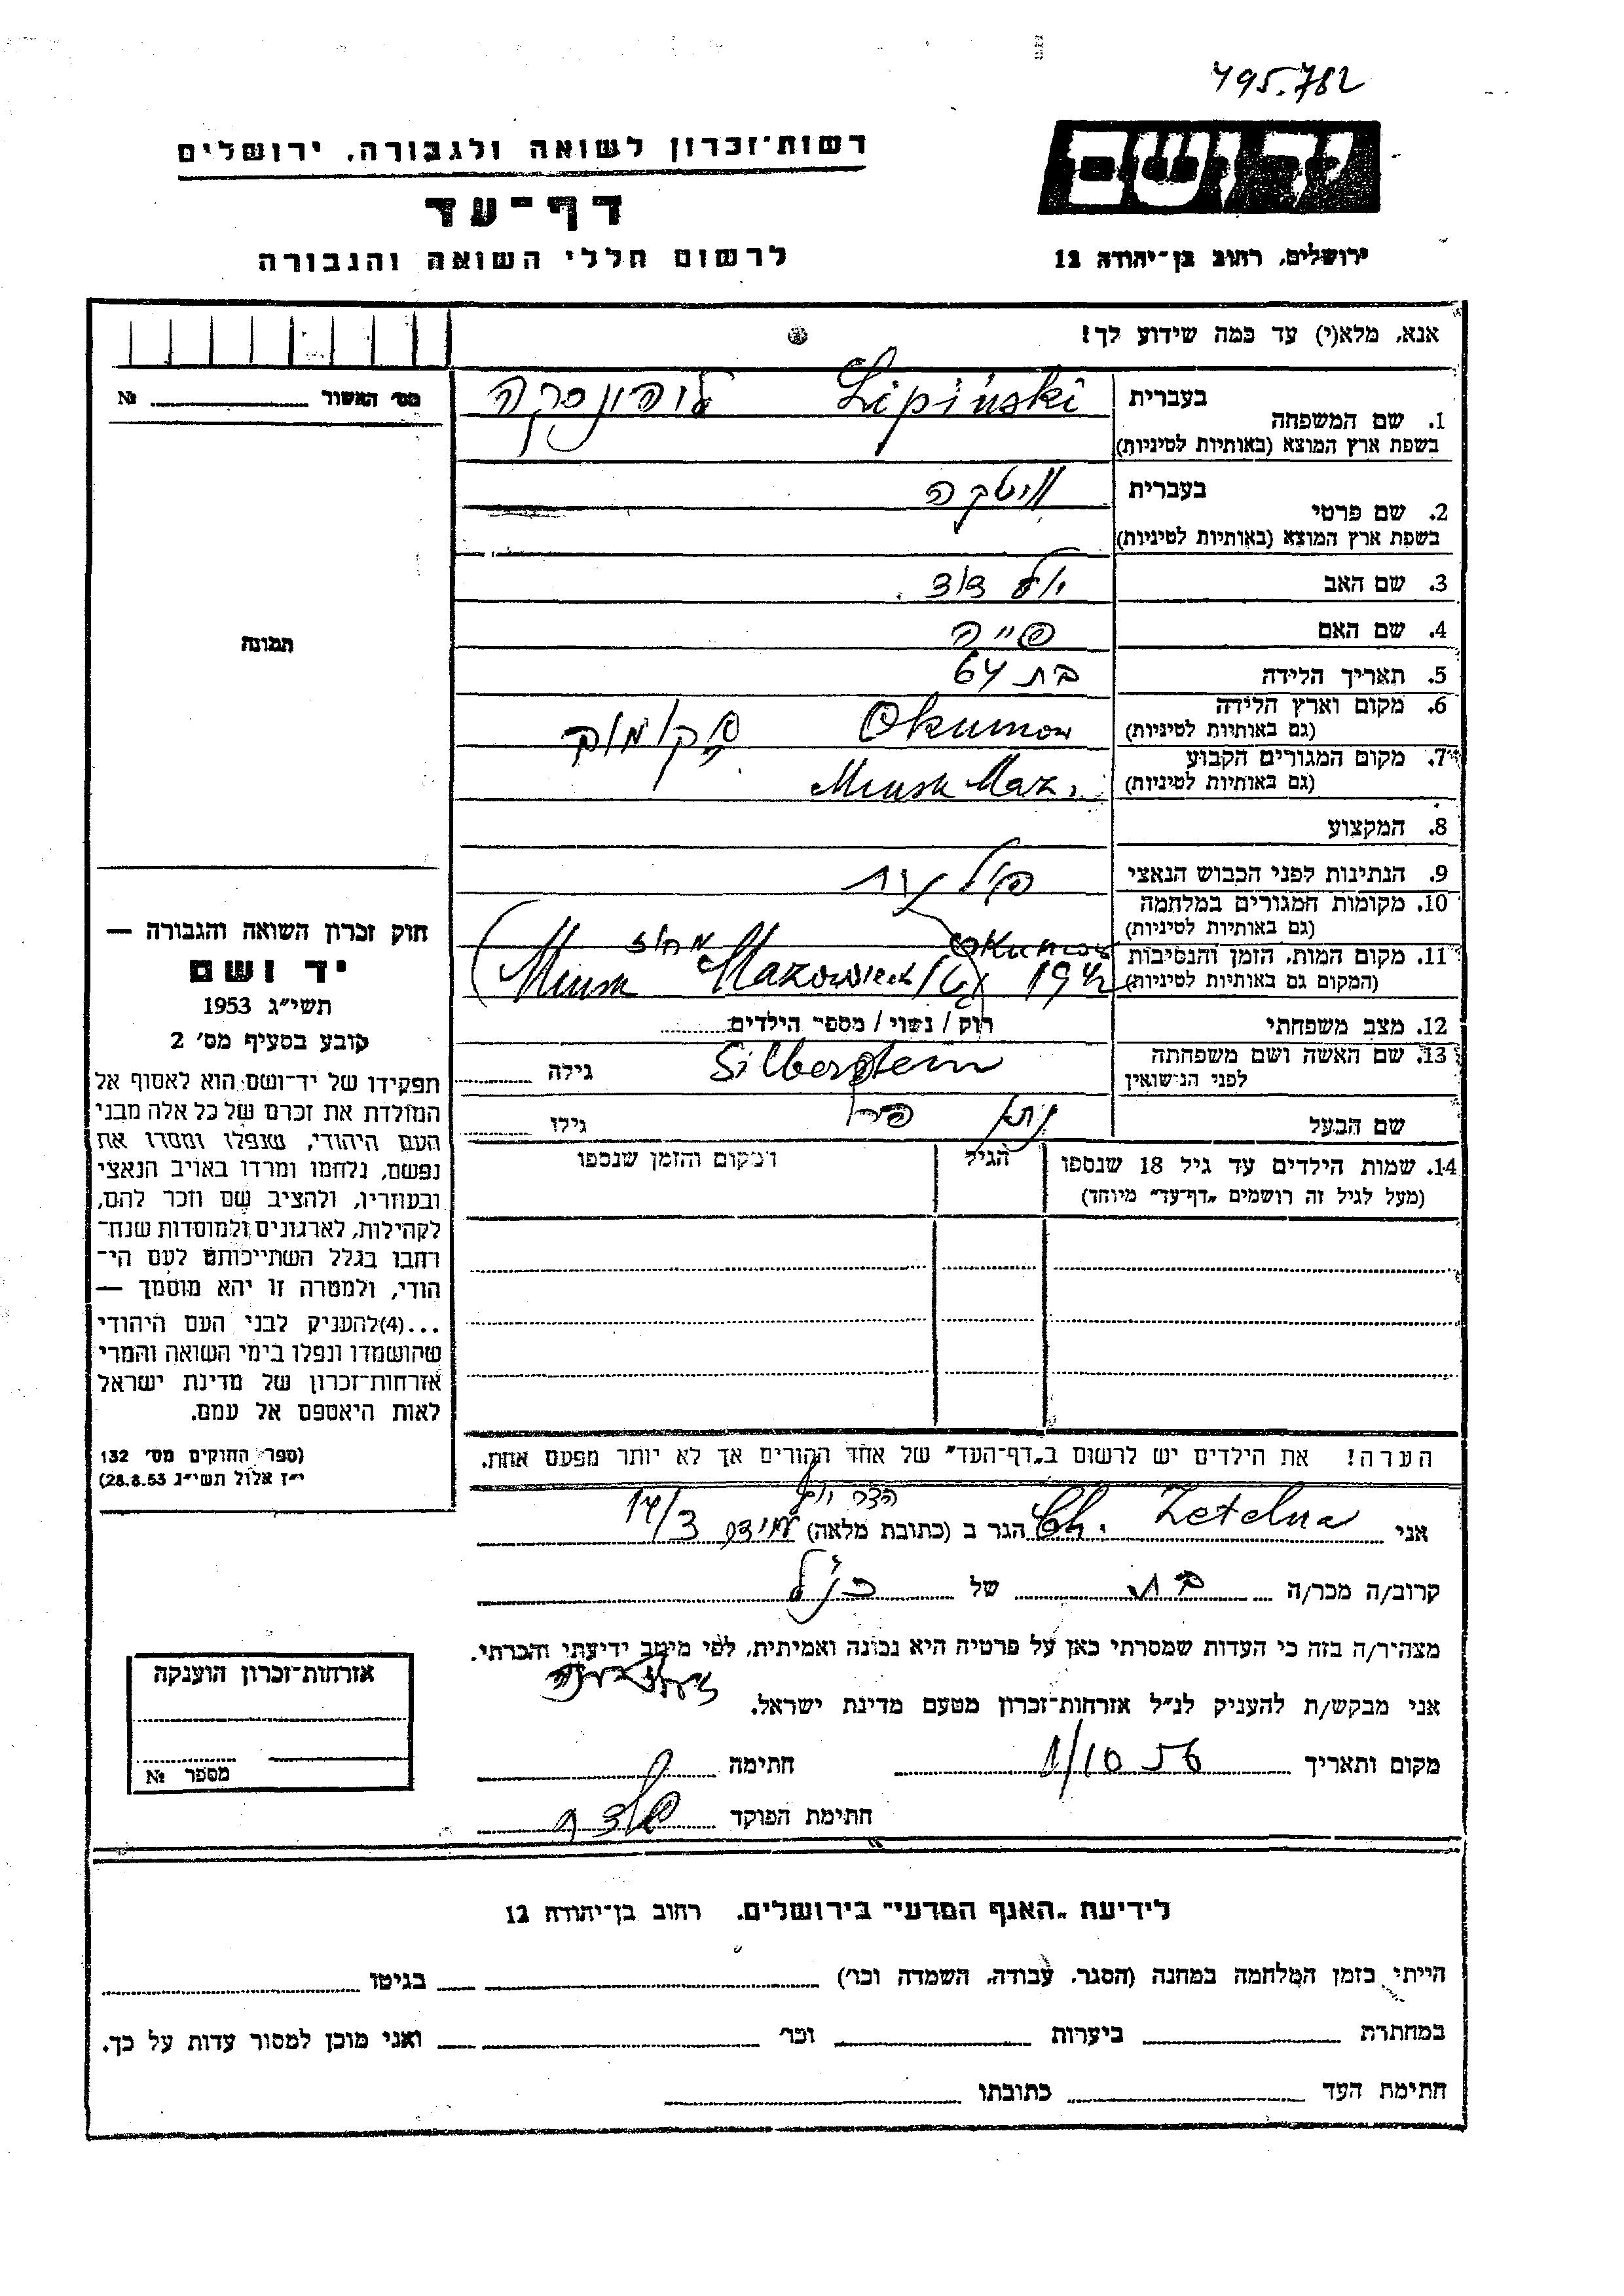 495.782
רשות־זכרון לשואה ולגבורה, ירושלים
יד ושם
דף־עד
לרשום חללי השואה והגבורה
ירושלים, רחוב בן־יהודה 12
אנא, מלא(י) עד כמה שידוע לך!
מס' האשור №
1. שם המשפחה
בעברית Lipiński ליפינסקה
בשפת ארץ המוצא (באותיות לטיניות)
2. שם פרטי
בעברית ויטקה
בשפת ארץ המוצא (באותיות לטיניות)
3. שם האב דוד
4. שם האם פייה
5. תאריך הלידה בת 64
6. מקום וארץ הלידה Okuniow
(גם באותיות לטיניות)
7. מקום המגורים הקבוע
(גם באותיות לטיניות) Minsk Maz.
8. המקצוע
9. הנתינות לפני הכבוש הנאצי פולנית
10. מקומות המגורים במלחמה
(גם באותיות לטיניות)
11. מקום המות, הזמן והנסיבות
(המקום גם באותיות לטיניות) 1942 Okuniow מחוז Minsk Mazowiecki
12. מצב משפחתי רוק / נשוי / מספר הילדים
13. שם האשה ושם משפחתה
לפני הנישואין Silberstein גילה
שם הבעל נתן גילו
14. שמות הילדים עד גיל 18 שנספו הגיל המקום והזמן שנספו
(מעל לגיל זה רושמים "דף־עד" מיוחד)
הערה! את הילדים יש לרשום ב"דף־העד" של אחד ההורים אך לא יותר מפעם אחת.
אני Ch. Zetelna הגר ב (כתובת מלאה) 14/3
קרוב/ה מכר/ה בת של הנ"ל
מצהיר/ה בזה כי העדות שמסרתי כאן על פרטיה היא נכונה ואמיתית, לפי מיטב ידיעתי והכרתי.
אני מבקש/ת להעניק לנ"ל אזרחות־זכרון מטעם מדינת ישראל.
מקום ותאריך 1/10 56 חתימה
חתימת הפוקד
תמונה
חוק זכרון השואה והגבורה —
יד ושם
תשי"ג 1953
קובע בסעיף מס' 2
תפקידו של יד־ושם הוא לאסוף אל
המולדת את זכרם של כל אלה מבני
העם היהודי, שנפלו ומסרו את
נפשם, נלחמו ומרדו באויב הנאצי
ובעוזריו, ולהציב שם וזכר להם,
לקהילות, לארגונים ולמוסדות שנח־
רחבו בגלל השתייכותם לעם הי־
הודי, ולמטרה זו יהא מוסמך —
...(4)להעניק לבני העם היהודי
שהושמדו ונפלו בימי השואה והמרי
אזרחות־זכרון של מדינת ישראל
לאות היאספם אל עמם.
(ספר החוקים מס' 132
י"ז אלול תשי"ג 28.8.53)
אזרחות־זכרון הוענקה
מספר №
לידיעת "האגף המדעי" בירושלים, רחוב בן־יהודה 12
הייתי בזמן המלחמה במחנה (הסגר, עבודה, השמדה וכו') בגיטו
במחתרת ביערות וכו' ואני מוכן למסור עדות על כך.
חתימת העד כתובתו